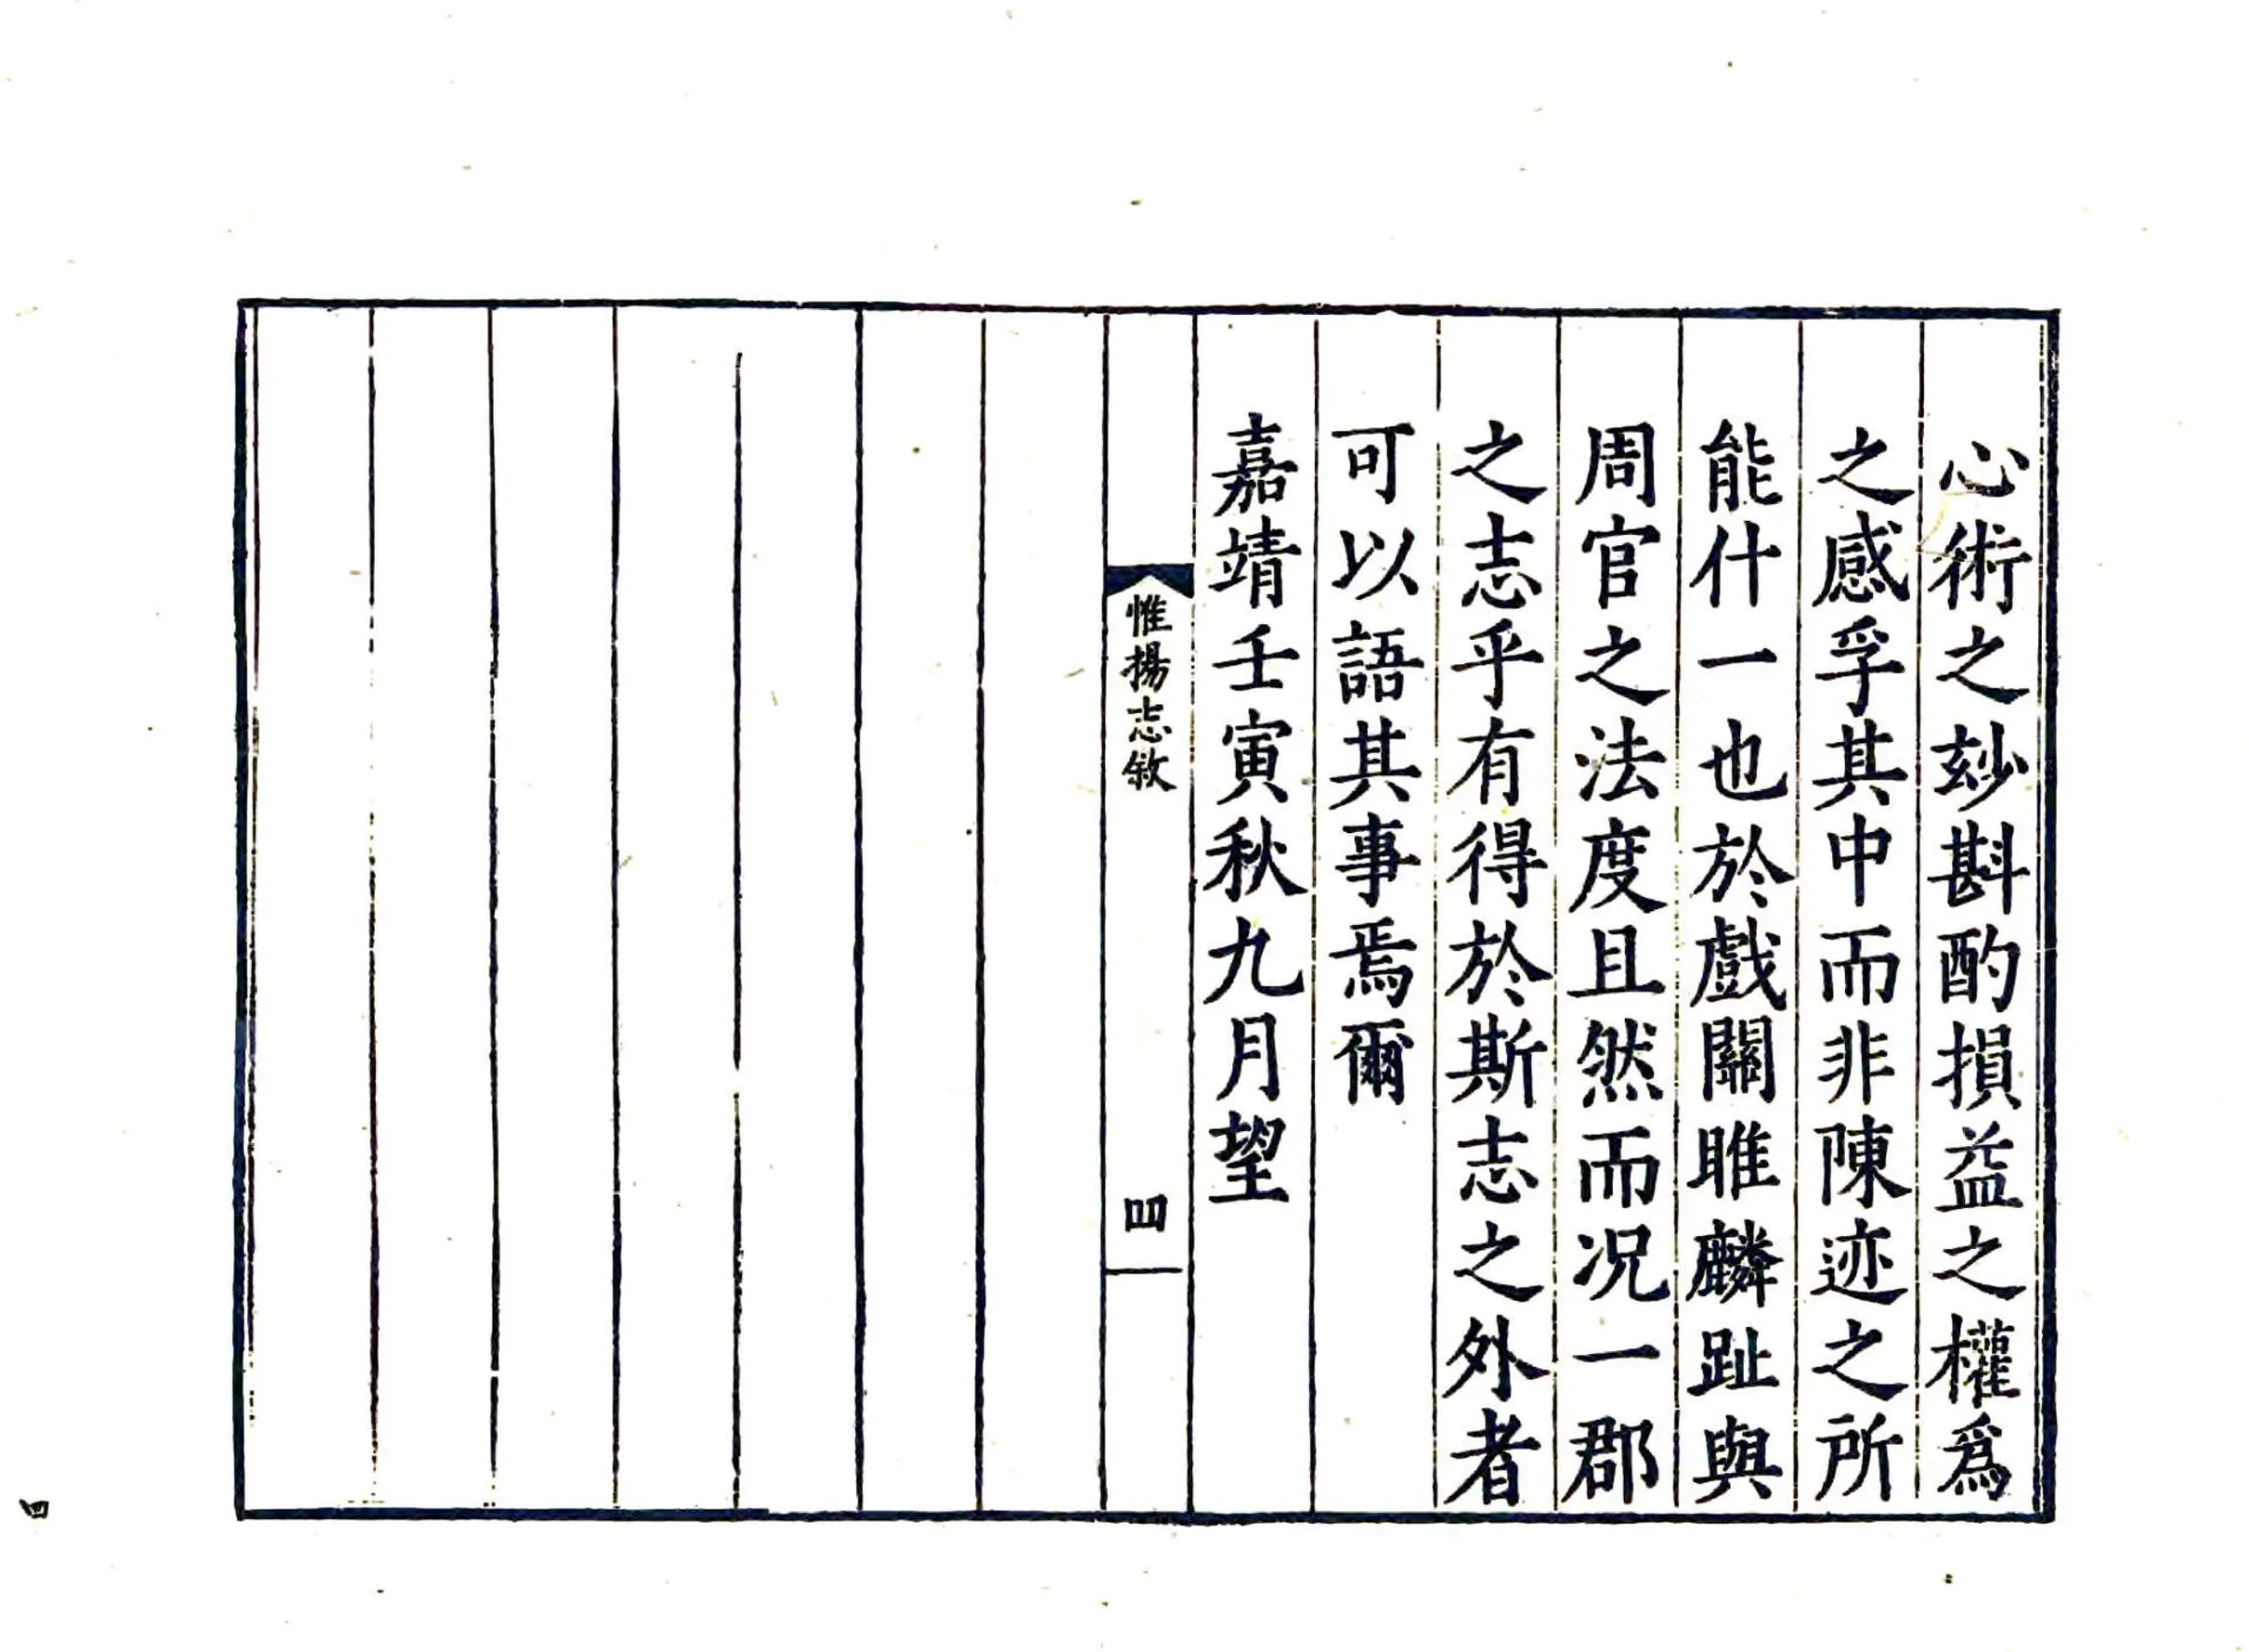 心術之玅斟酌損益之權爲
之感孚其中而非陳迹之所
能什一也於戲關雎麟趾與
周官之法度且然而况一郡
之志乎有得於斯志之外者
可以語其事焉爾
嘉靖壬寅秋九月望
惟揚志敘
四
四